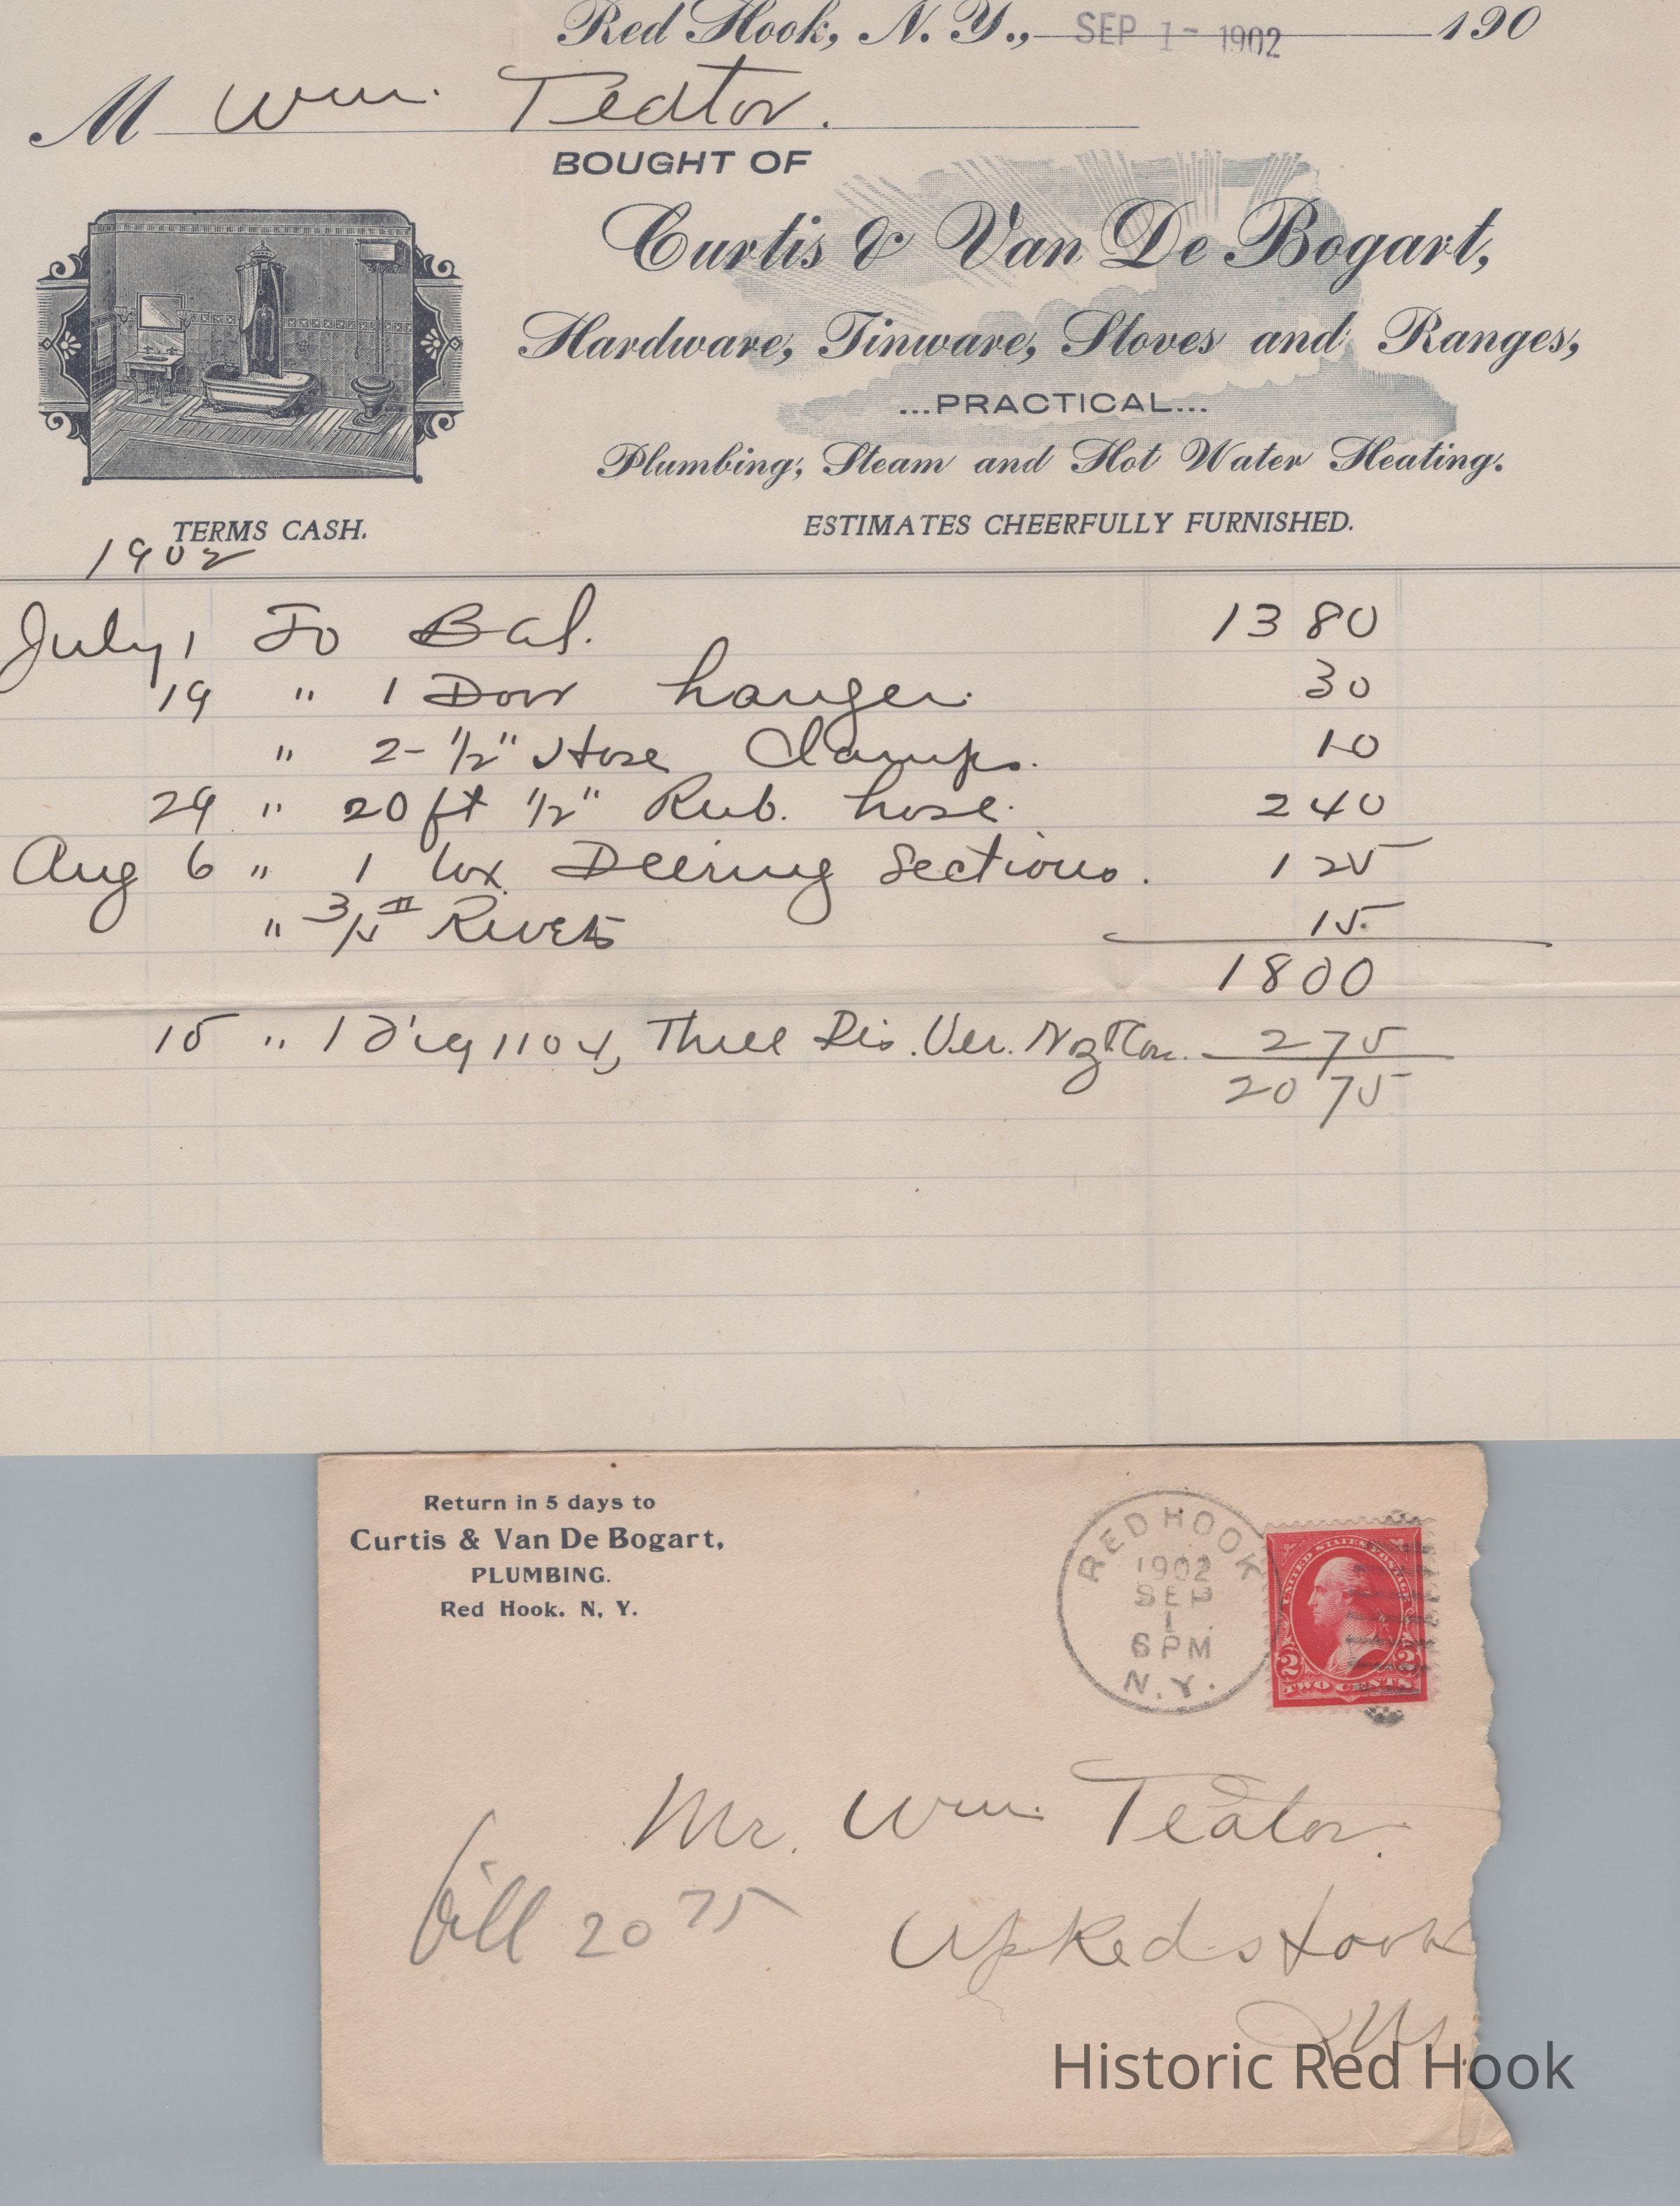 Red Hook, N. Y., SEP 1- 1902 190
M Wm. Teator.
BOUGHT OF
Curtis & Van De Bogart,
Hardware, Tinware, Stoves and Ranges,
...PRACTICAL...
Plumbing, Steam and Hot Water Heating.
TERMS CASH.
ESTIMATES CHEERFULLY FURNISHED.
1902
July 1 To Bal. 13 80
19 " 1 Door hanger. 30
" 2- 1/2" Hose Clamps. 10
29 " 20 ft 1/2" Rub. hose. 2 40
Aug 6 " 1 box Deering Sections. 1 25
" Rivets 15
18 00
15 " 1 Three Dis. 2 75
20 75
Return in 5 days to
Curtis & Van De Bogart,
PLUMBING.
Red Hook. N, Y.
RED HOOK
1902
SEP
1
6 PM
N.Y.
UNITED STATES POSTAGE
2 2
TWO CENTS
Mr. Wm. Teator.
bill 20 75
Up Red Hook
Historic Red Hook